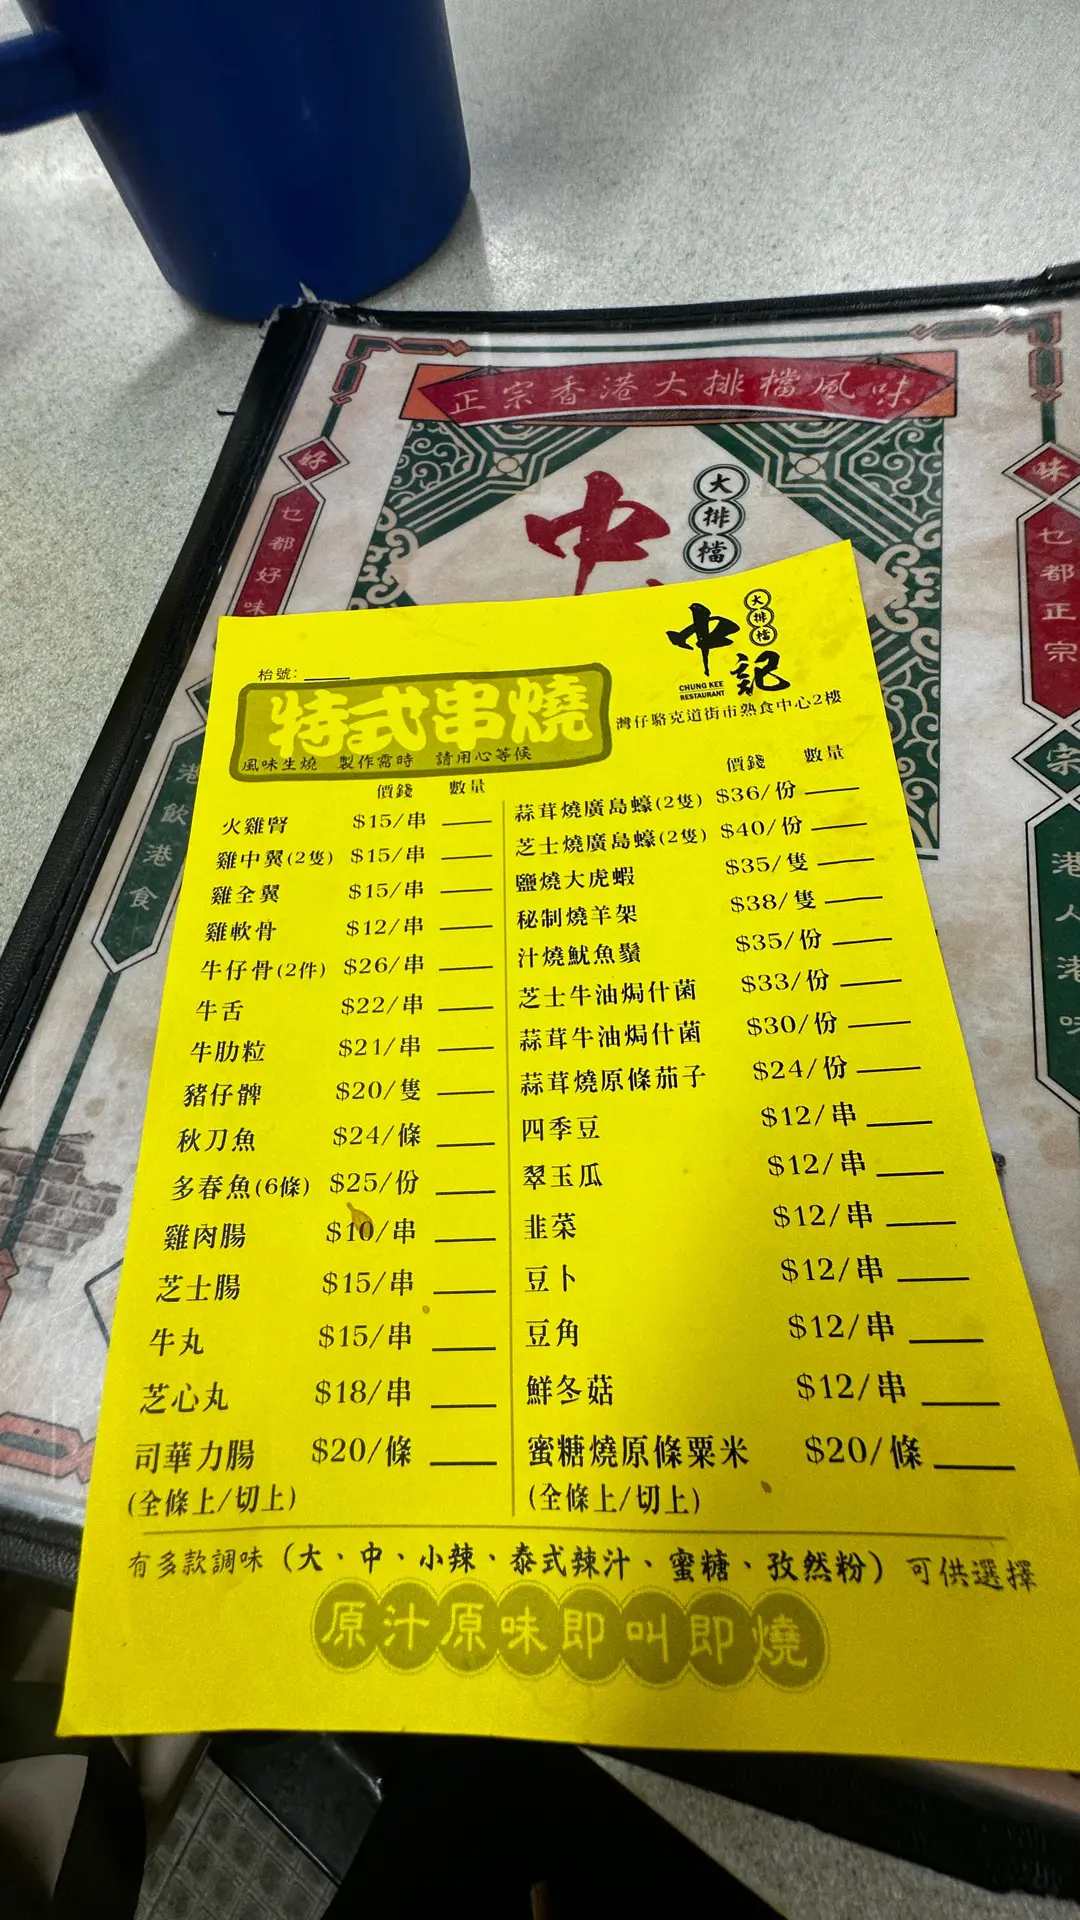 正宗香港大排檔風味
好
乜都好味
港飲港食
味
乜都正宗
宗
港人港味
中
大排檔
枱號：
中記
大排檔
CHUNG KEE
RESTAURANT
灣仔駱克道街市熟食中心2樓
特式串燒
風味生燒 製作需時 請用心等候
價錢 數量
火雞腎 $15/串
雞中翼(2隻) $15/串
雞全翼 $15/串
雞軟骨 $12/串
牛仔骨(2件) $26/串
牛舌 $22/串
牛肋粒 $21/串
豬仔髀 $20/隻
秋刀魚 $24/條
多春魚(6條) $25/份
雞肉腸 $10/串
芝士腸 $15/串
牛丸 $15/串
芝心丸 $18/串
司華力腸 $20/條
(全條上/切上)
價錢 數量
蒜茸燒廣島蠔(2隻) $36/份
芝士燒廣島蠔(2隻) $40/份
鹽燒大虎蝦 $35/隻
秘制燒羊架 $38/隻
汁燒魷魚鬚 $35/份
芝士牛油焗什菌 $33/份
蒜茸牛油焗什菌 $30/份
蒜茸燒原條茄子 $24/份
四季豆 $12/串
翠玉瓜 $12/串
韭菜 $12/串
豆卜 $12/串
豆角 $12/串
鮮冬菇 $12/串
蜜糖燒原條粟米 $20/條
(全條上/切上)
有多款調味（大、中、小辣、泰式辣汁、蜜糖、孜然粉）可供選擇
原汁原味即叫即燒